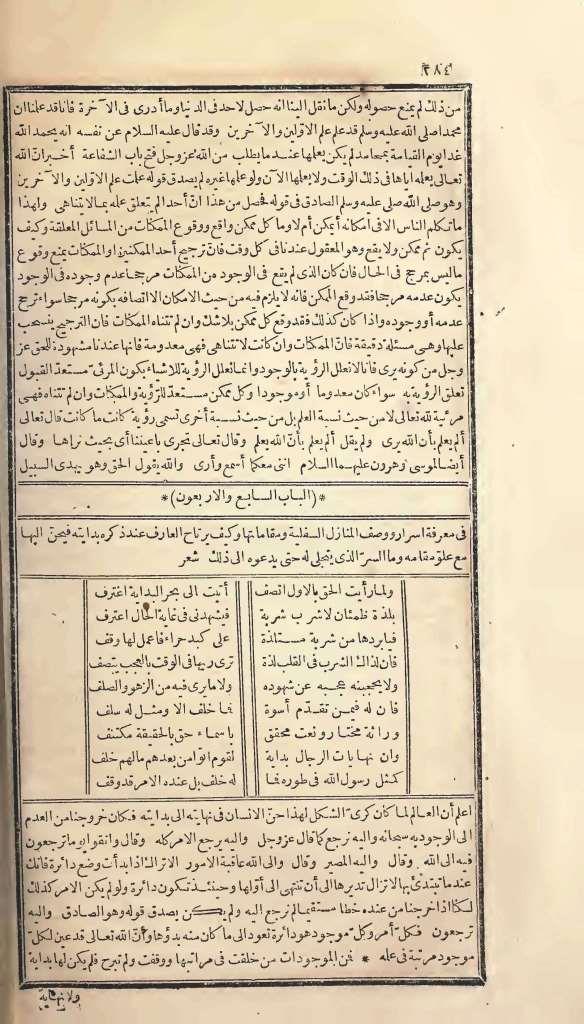 ٢٨٤
من ذلك لم يمنع حصوله ولكن ما نقل الينا انه حصل لاحد فى الدنيا وما أدرى فى الآخرة فاناقد علمنا ان
محمدا صلى الله عليه وسلم قد علم علم الاولين والآخرين وقد قال عليه السلام عن نفسه انه يحمد الله
غدا يوم القيامة بمحامد لم يكن يعلمها عند ما يطلب من الله عز وجل فتح باب الشفاعة أخبر انّ الله
تعالى يعلمه اياها فى ذلك الوقت ولا يعلمها الآن ولو علمها غيره لم يصدق قوله علمت علم الاولين والآخرين
وهو صلى الله صلى عليه وسلم الصادق فى قوله فحصل من هذا انّ أحدا لم يتعلق علمه بما لا يتناهى ولهذا
ما تكلم الناس الا فى امكانه أيمكن أم لا وما كل ممكن واقع ووقوع الممكنات من المسائل المغلقة وكيف
يكون ثم ممكن ولا يقع وهو المعقول عندنا فى كل وقت فانّ ترجيح أحد الممكنين أو الممكنات يمنع وقوع
ما ليس بمرجح فى الحال فان كان الذى لم يقع فى الوجود من الممكنات مرجحا عدم وجوده فى الوجود
يكون عدمه مرجحا فقد وقع الممكن فانه لا يلزم فيه من حيث الامكان الا اتصافه بكونه مرجحا سواء ترجح
عدمه أو وجوده واذا كان كذلك فقد وقع كل ممكن بلا شك وان لم تتناه الممكنات فان الترجيح ينسحب
عليها وهى مسئلة دقيقة فانّ الممكنات وان كانت لا تتناهى فهى معدومة فانها عندنا مشهودة للحق عز
وجل من كونه يرى فانا لا نعلل الرؤية بالوجود وانما نعلل الرؤية للاشياء بكون المرئىّ مستعدّ القبول
تعلق الرؤية به سواء كان معدوما أو موجودا وكل ممكن مستعدّ للرؤية والممكنات وان لم تتناه فهى
مرئية لله تعالى لا من حيث نسبة العلم بل من حيث نسبة أخرى تسمى رؤية كانت ما كانت قال تعالى
ألم يعلم بأن الله يرى ولم يقل ألم يعلم بأنّ الله يعلم وقال تعالى تجرى باعيننا أى بحيث نراها وقال
أيضا لموسى وهرون عليهما السلام اننى معكما أسمع وأرى والله يقول الحق وهو يهدى السبيل
* (الباب السابع والاربعون) *
فى معرفة اسرار ووصف المنازل السفلية ومقاماتها وكيف يرتاح العارف عند ذكره بدايته فيحنّ اليها
مع علوّ مقامه وما السرّ الذى يتجلى له حتى يدعوه الى ذلك شعر
ولما رأيت الحق بالاول اتصف أتيت الى بحر البداية أغترف
بلذة ظمئان لاشرب شربة فيشهدنى فى غاية الحال أعترف
فيابردها من شربة مستلذة على كبد حراء فاعمل لها وقف
فان لذاك الشرب فى القلب لذة ترى ربها فى الوقت بالعجب يتصف
ولا يحجبنه عجبه عن شهوده ولا ما يرى فيه من الزهو والصلف
فان له فيمن تقدّم أسوة فما خلف الا ومثله سلف
وراثة مختار ونعت محقق باسماء حق بالحقيقة مكتنف
وان نهايات الرجال بداية لقوم أتوا من بعدهم مالهم خلف
كمثل رسول الله فى طوره فما له خلف بل عنده الامر قد وقف
اعلم أن العالم لما كان كرىّ الشكل لهذا حنّ الانسان فى نهايته الى بدايته فكان خروجنا من العدم
الى الوجود به سبحانه واليه نرجع كما قال عز وجل واليه يرجع الامر كله وقال واتقوا يوما ترجعون
فيه الى الله وقال واليه المصير وقال والى الله عاقبة الامور الا تراك اذا بدأت وضع دائرة فانك
عند ما تبتدئ بها لا تزال تديرها الى أن تنتهى الى أولها وحينئذ تكون دائرة ولو لم يكن الامر كذلك
لكنا اذا خرجنا من عنده خطا مستقيما لم نرجع اليه ولم يكن يصدق قوله وهو الصادق واليه
ترجعون فكل أمر وكل موجود هو دائرة تعود الى ما كان منه بدؤها وأنّ الله تعالى قد عين لكل
موجود مرتبة فى علمه * فمن الموجودات من خلقت فى مراتبها ووقفت ولم تبرح فلم يكن لها بداية
ولا نهاية